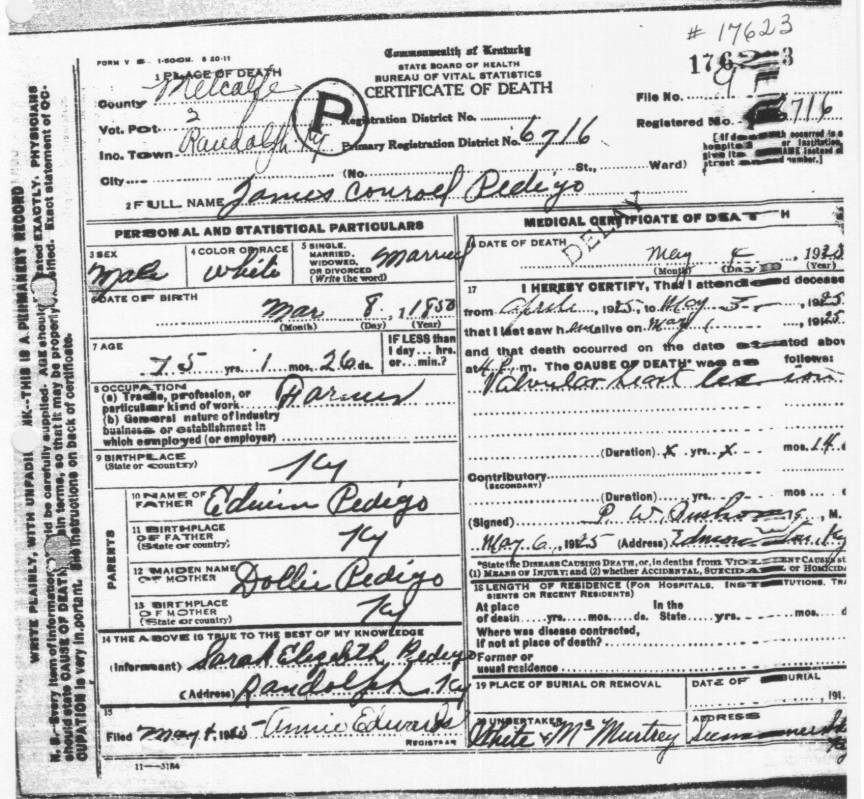 # 17623
FORM V S. 1-500M. 8 20-11
Commonwealth of Kentucky
STATE BOARD OF HEALTH
BUREAU OF VITAL STATISTICS
CERTIFICATE OF DEATH
17623
1 PLACE OF DEATH
County Metcalfe
Vot. Pct. 2
Inc. Town Randolph Ky
City
P
Registration District No.
Primary Registration District No. 6716
(No. St., Ward)
File No.
Registered No. 6716
[If death occurred in a
hospital or institution,
give its NAME instead of
street and number.]
2 FULL NAME James Conroel Pedigo
PERSONAL AND STATISTICAL PARTICULARS
3 SEX
Male
4 COLOR OR RACE
White
5 SINGLE,
MARRIED,
WIDOWED,
OR DIVORCED
(Write the word)
Married
6 DATE OF BIRTH
Mar 8, 1850
(Month) (Day) (Year)
7 AGE
75 yrs. 1 mos. 26 ds.
IF LESS than
1 day... hrs.
or... min.?
8 OCCUPATION
(a) Trade, profession, or
particular kind of work Farmer
(b) General nature of industry
business or establishment in
which employed (or employer)
9 BIRTHPLACE
(State or country)
Ky
PARENTS
10 NAME OF
FATHER Edwin Pedigo
11 BIRTHPLACE
OF FATHER
(State or country)
Ky
12 MAIDEN NAME
OF MOTHER Dollie Pedigo
13 BIRTHPLACE
OF MOTHER
(State or country)
Ky
14 THE ABOVE IS TRUE TO THE BEST OF MY KNOWLEDGE
(Informant) Sarah Elizabeth Pedigo
(Address) Randolph Ky
15
Filed May 8, 1925 Annie Edwards
REGISTRAR
11—3184
MEDICAL CERTIFICATE OF DEATH
DELAY
DATE OF DEATH
May 4, 1925
(Month) (Day) (Year)
17 I HEREBY CERTIFY, That I attended decease
from Aprile, 1925, to May 3, 1925
that I last saw h alive on May 1, 1925
and that death occurred on the date stated abov
at 4 P.m. The CAUSE OF DEATH* was as follows:
Valvular heart lesion
(Duration) x yrs. x mos. 14 d
Contributory
(SECONDARY)
(Duration) yrs. mos. d
(Signed) P. W. M.
May 6, 1925 (Address) Edmonton, Ky
*State the DISEASE CAUSING DEATH, or, in deaths from VIOLENT CAUSES st
(1) MEANS OF INJURY; and (2) whether ACCIDENTAL, SUICIDAL or HOMICID
18 LENGTH OF RESIDENCE (FOR HOSPITALS, INSTITUTIONS, TRA
SIENTS OR RECENT RESIDENTS)
At place In the
of death yrs. mos. ds. State yrs. mos. d
Where was disease contracted,
if not at place of death?
Former or
usual residence
19 PLACE OF BURIAL OR REMOVAL
DATE OF BURIAL
191
UNDERTAKER
White & McMurtrey
ADDRESS
Summer Sh
Ky
WRITE PLAINLY, WITH UNFADING INK—THIS IS A PERMANENT RECORD
N. B.—Every item of information should be carefully supplied. AGE should be stated EXACTLY. PHYSICIANS
should state CAUSE OF DEATH in plain terms, so that it may be properly classified. Exact statement of OC-
CUPATION is very important. See instructions on back of certificate.